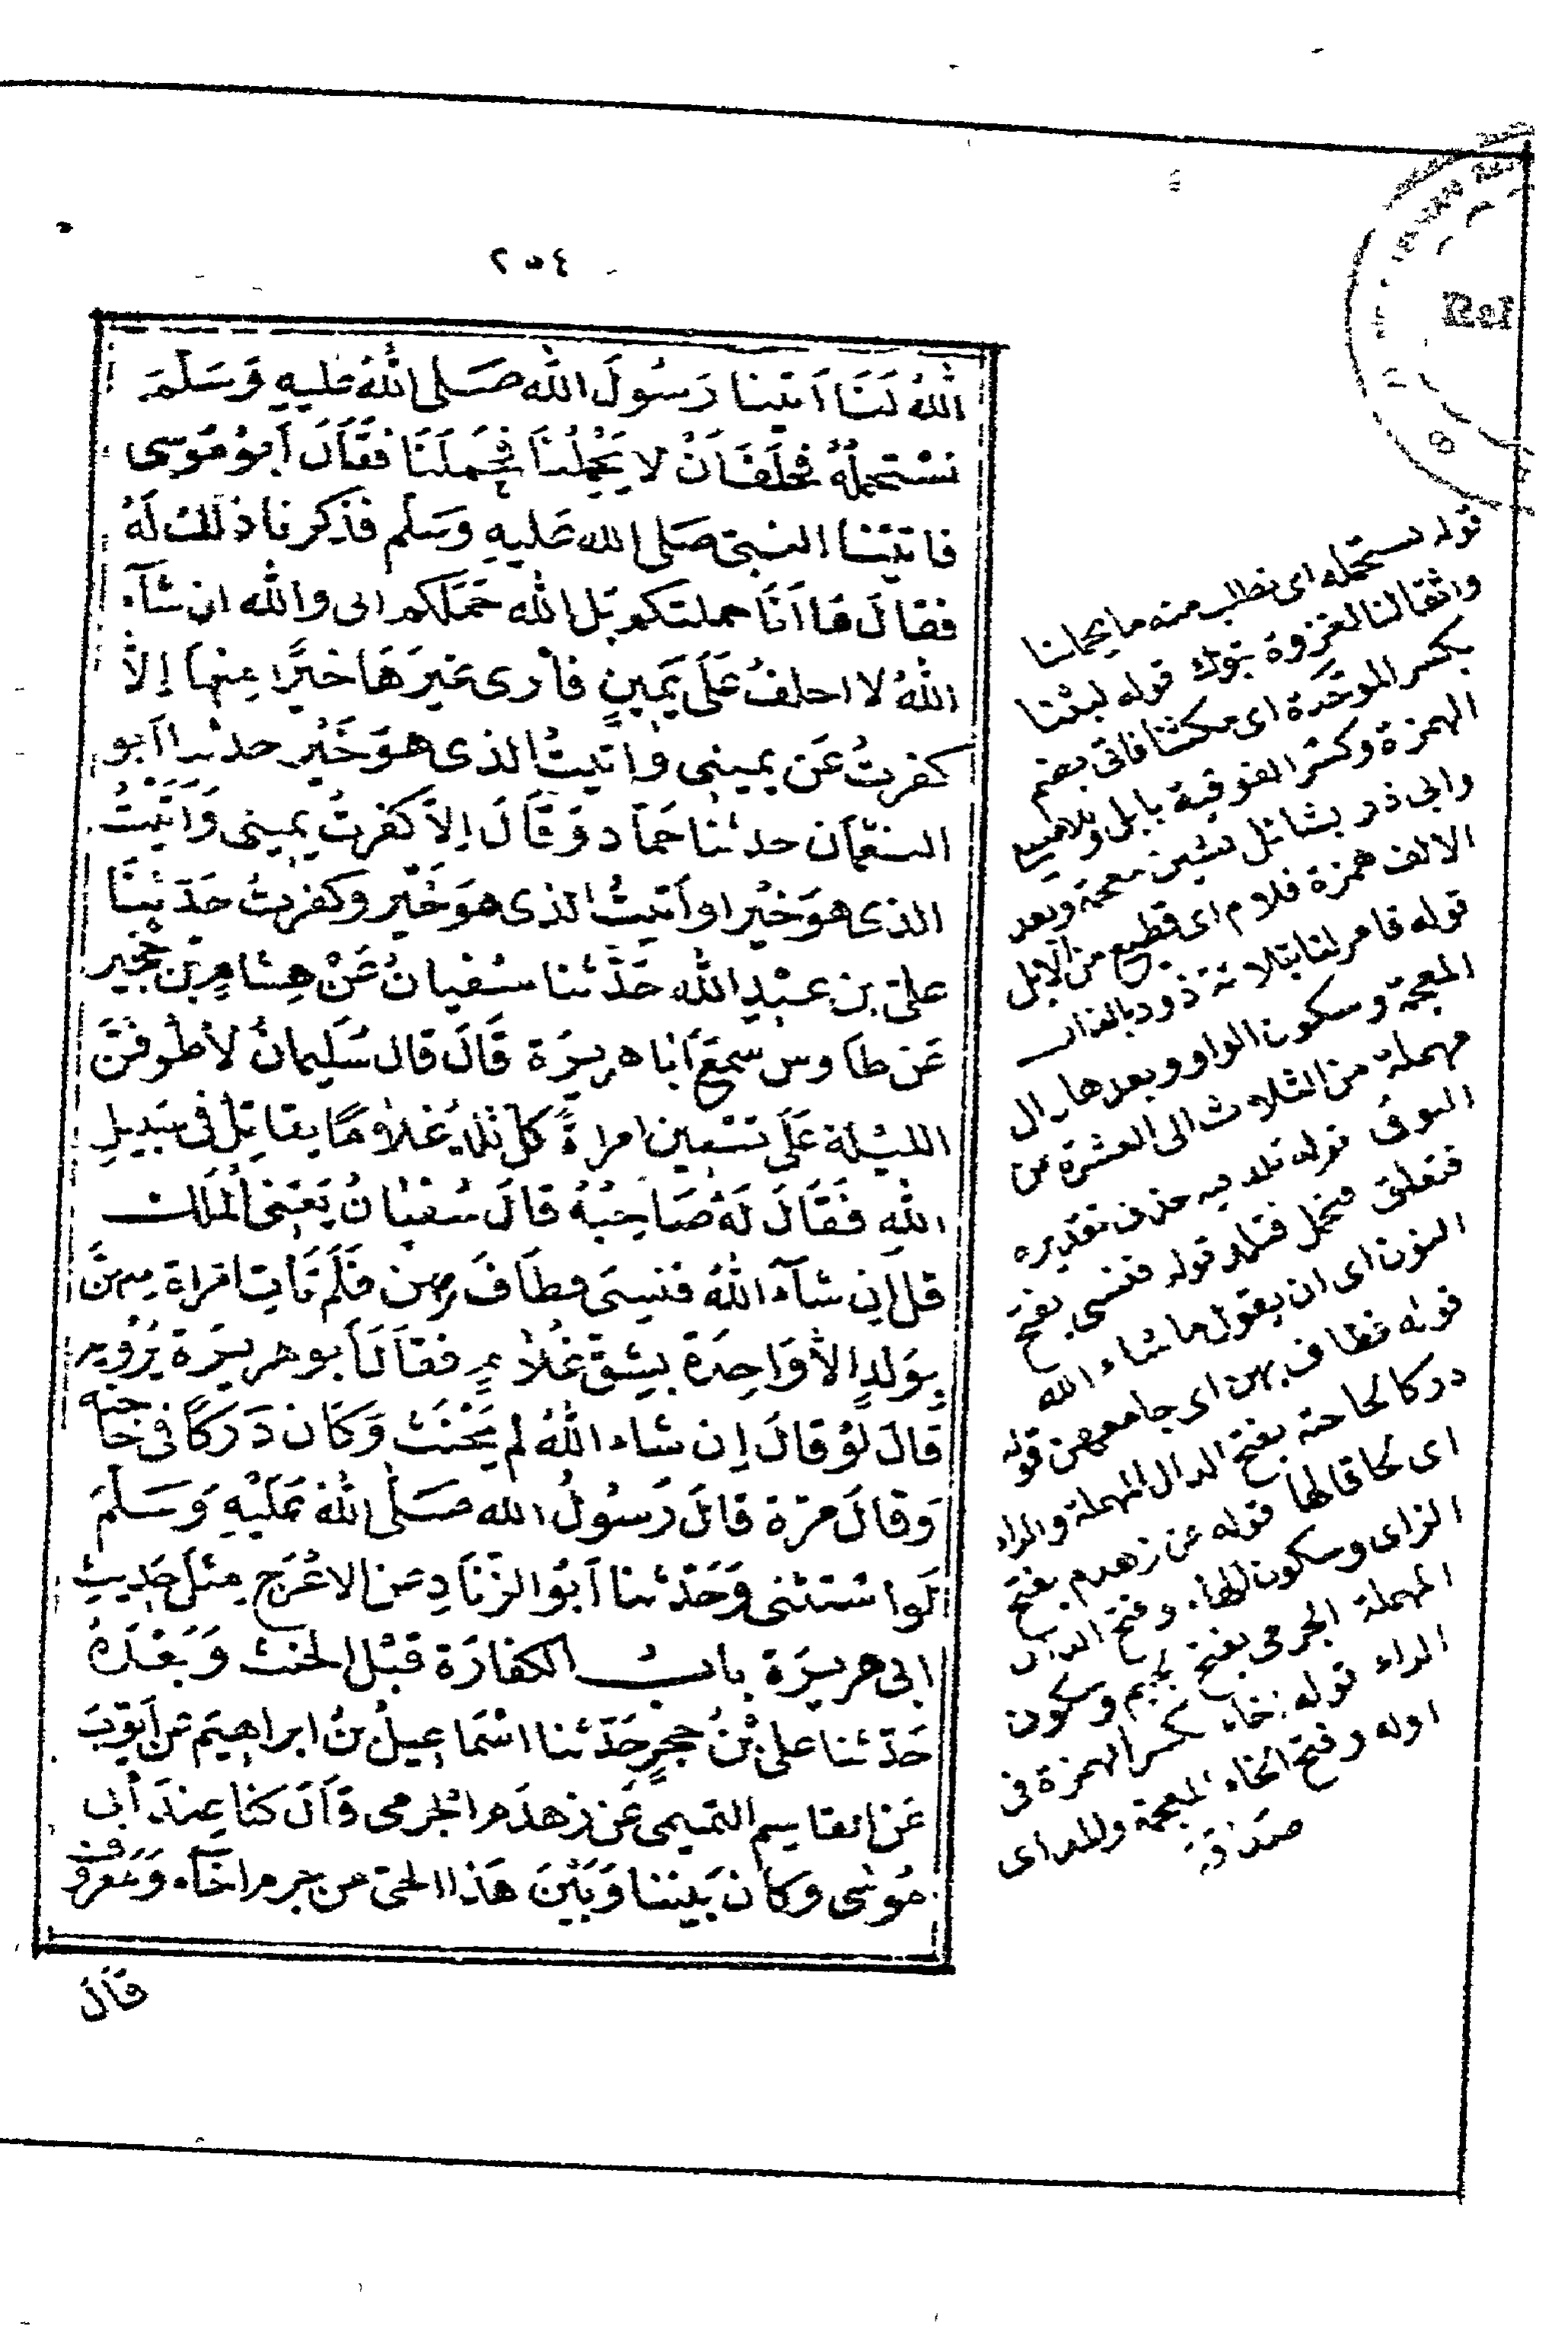 ٢٥٤
الله لَنَا اَتينا رَسُولَ الله صَلى الله عليهِ وَسَلمَ
نستحملهُ فحلَفَ اَنْ لا يَحْمِلُنَا فحَمَلَنَا فقَالَ اَبوُ مَوُسى
فاتيْنا النبىّ صَلى الله عَليهِ وَسَلم فذكرنا ذلك لَهُ
فقالَ مَا اَنَا حملتكم بَل الله حَمَلكم انى والله ان شآء
اللهُ لا احلفُ عَلَى يَمينٍ فأرى غيرَهَا خيرًا مِنها إلاَّ
كفرتُ عَن يمينى واتيتُ الذى هوَ خَيْر حدثنا اَبو
النعمَان حدثنا حَماد وَقَالَ اِلاَّ كَفَرتُ يَمينى وَاَتَيْتُ
الذى هوَ خَيْر او اَتيتُ الذى هوَ خَيْر وكفرتُ حَدّثنَا
علىّ بن عبْدِ الله حَدَّثنا سفيانُ عَنْ هِشامِ بن حُجَير
عَن طاوس سمعَ اَبا هريرَة قَالَ قال سُلَيمانُ لأَطوفَنَّ
الليْلة عَلَى تسْعين امراةً كلٌ تلدُ غلامًا يقاتِل فى سَبيلِ
الله فَقَالَ لَهُ صَاحِبُهُ قالَ سُفيانُ يَعَنى الملَك
قل اِن شآءَ اللهُ فنسِىَ فطَافَ بهن فَلَم تَأتِ امراة مِنهنَّ
بوَلدٍ الاَّ وَاحِدَة بِشِقّ غُلامٍ فقالَ اَبو هريرَة يَرْويه
قَالَ لَوْ قالَ اِن شاء اللهُ لم يَحْنَث وَكَان دَرَكًا فى حَاجته
وَقالَ مرّة قالَ رَسُولُ الله صَلَّى اللهُ عَلَيْهِ وَسَلَّمَ
لَو استثنى وَحَدّثنا اَبوُ الزّنَادِ عَن الاعْرَج مِثلَ حَديثِ
ابى هريرَة باب الكفارَة قَبْل الحنث وَبَعْدَهُ
حَدّثنا على بْنُ حجرٍ حَدّثنا اسْمَاعِيلُ بنُ ابراهِيمَ عَن اَيوّبَ
عَن القاسِم التميمى عَن زهدَم الجرمى قَالَ كنا عِندَ اَبى
مُوسٰى وكان بَيننا وَبَيْنَ هَذا الحىّ من جرم اخآء وَمَعروف
قَالَ
قوله نستحمله اى نطلب منه ما يحملنا
واثقالنا لغزوة تبوك قوله لبثنا
بكسر الموحدة اى مكثنا فاتى بضم
الهمزة وكسر الفوقية بابل
وابى ذر بشائل بشين معجمة وبعد
الالف همزة فلام اى قطيع من الابل
قوله فامر لنا بثلاثة ذود بالذال
المعجمة وسكون الواو وبعدها دال
مهملة من الثلاث الى العشرة من
النوق قوله تلد فيه حذف تقديره
فتعلق فتحمل فتلد قوله فنسى بفتح
النون اى ان يقول ما شاء الله
قوله فطاف بهن اى جامعهن قوله
دركا لحاجته بفتح الدال المهملة والراء
اى لحاقا لها قوله عن زهدم بفتح
الزاى وسكون الهاء وفتح الدال
المهملة الجرمى بفتح الجيم وسكون
الراء قوله إخاء بكسر الهمزة فى
اوله وفتح الخاء المعجمة والمد اى
صداقة